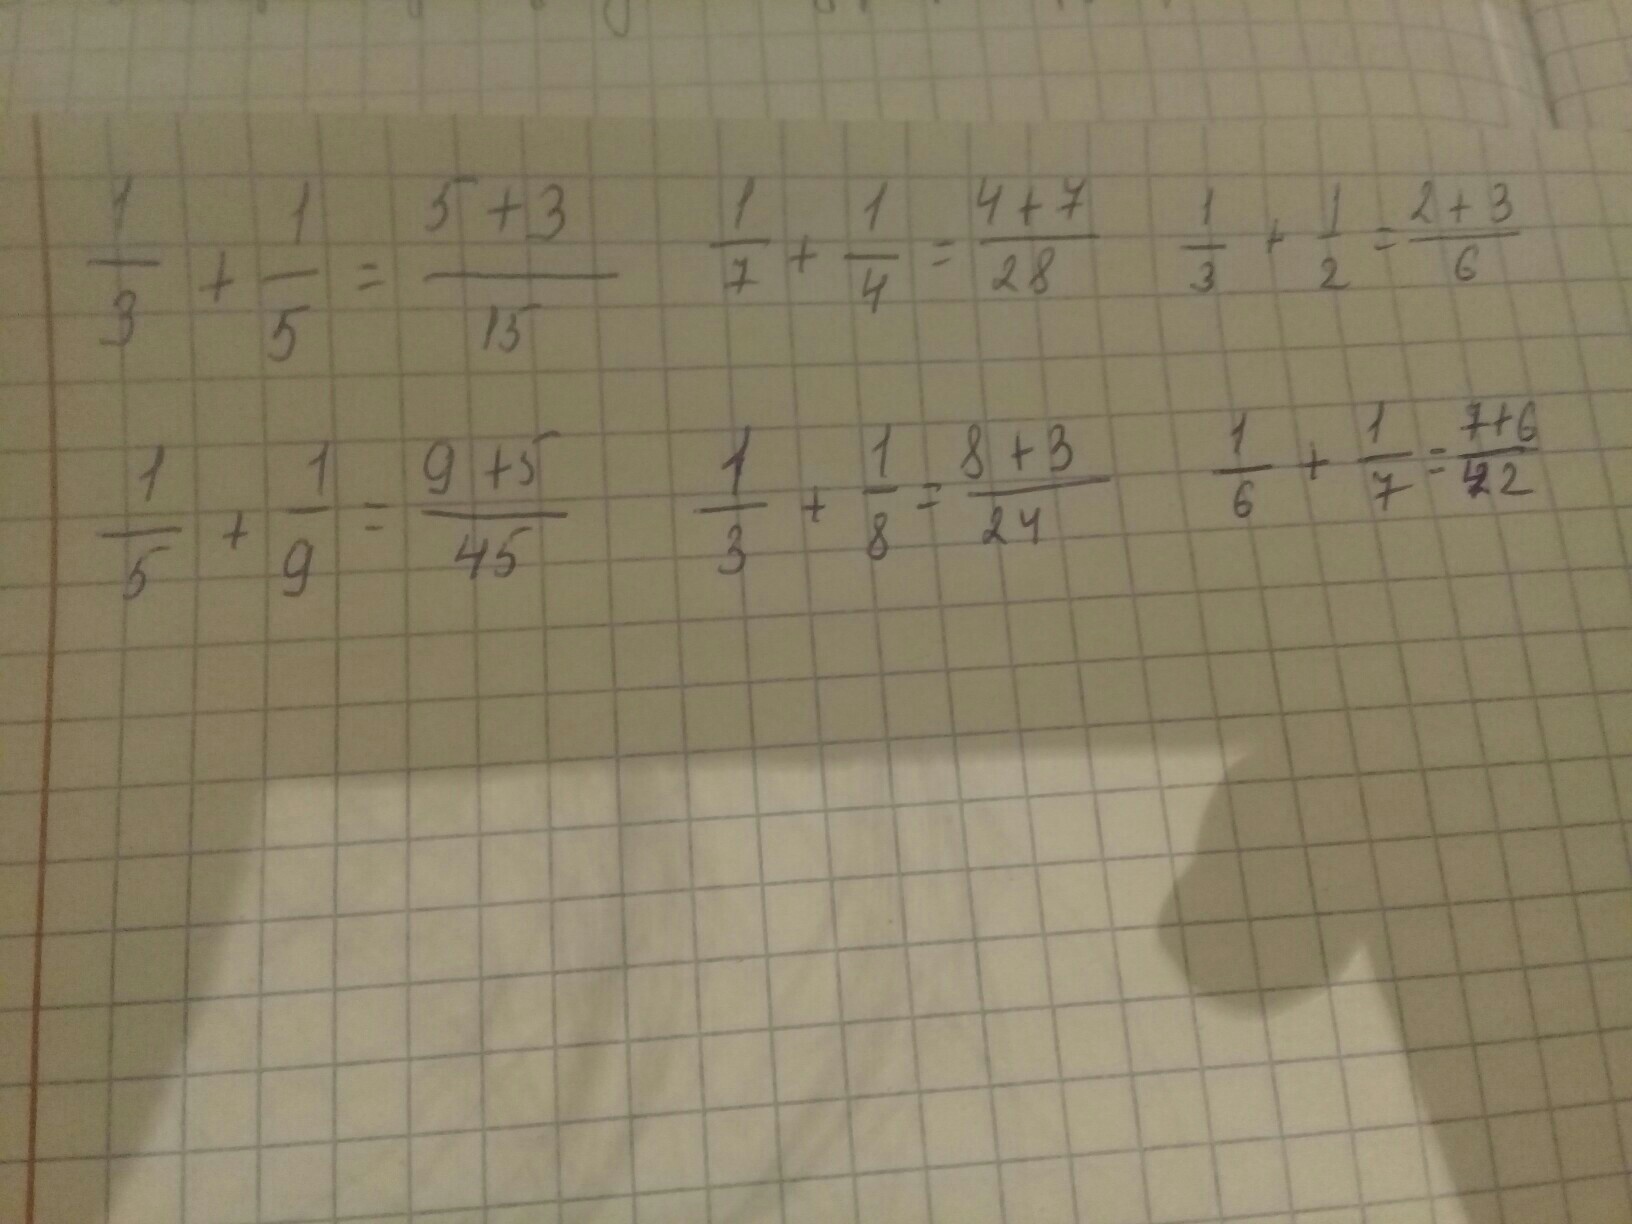 1/3 + 1/5 = (5+3)/15   1/7 + 1/4 = (4+7)/28   1/3 + 1/2 = (2+3)/6
1/5 + 1/9 = (9+5)/45   1/3 + 1/8 = (8+3)/24   1/6 + 1/7 = (7+6)/42